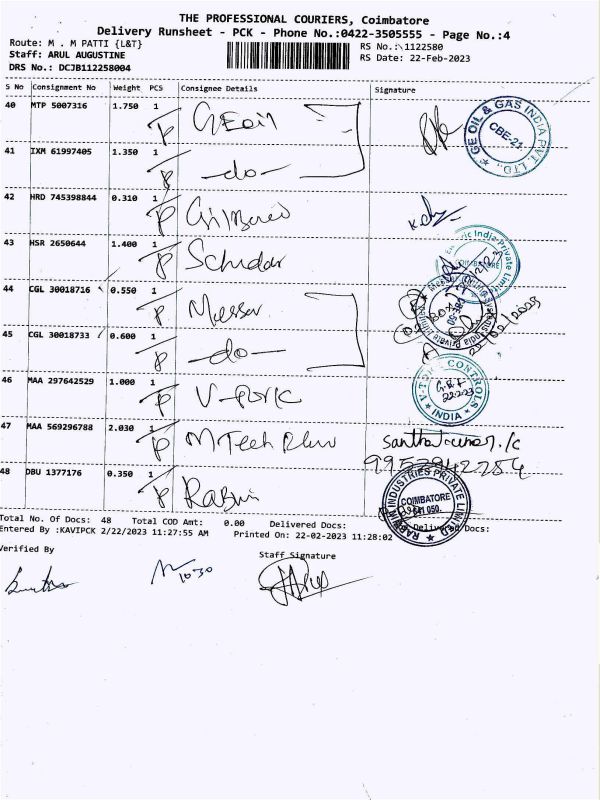 THE PROFESSIONAL COURIERS, Coimbatore
Delivery Runsheet - PCK - Phone No.:0422-3505555 - Page No.:4
Route: M . M PATTI {L&T}
RS No.: 1122580
Staff: ARUL AUGUSTINE
RS Date: 22-Feb-2023
DRS No.: DCJB112258004
S No Consignment No Weight PCS Consignee Details Signature
40 MTP 5007316 1.750 1
GE oil
GE OIL & GAS INDIA PVT. LTD.
CBE-21
41 IXM 61997405 1.350 1
-do-
42 HRD 745398844 0.310 1
43 HSR 2650644 1.400 1
India Private Limited
44 CGL 30018716 0.550 1
Messer
45 CGL 30018733 0.600 1
-do-
46 MAA 297642529 1.000 1
V-TORK CONTROLS
22-2-23
INDIA
47 MAA 569296788 2.030 1
M Tech
48 DBU 1377176 0.350 1
INDUSTRIES PRIVATE LIMITED
COIMBATORE
641 050.
Total No. Of Docs: 48 Total COD Amt: 0.00 Delivered Docs:
Entered By :KAVIPCK 2/22/2023 11:27:55 AM Printed On: 22-02-2023 11:28:02
Verified By
Staff Signature
1030